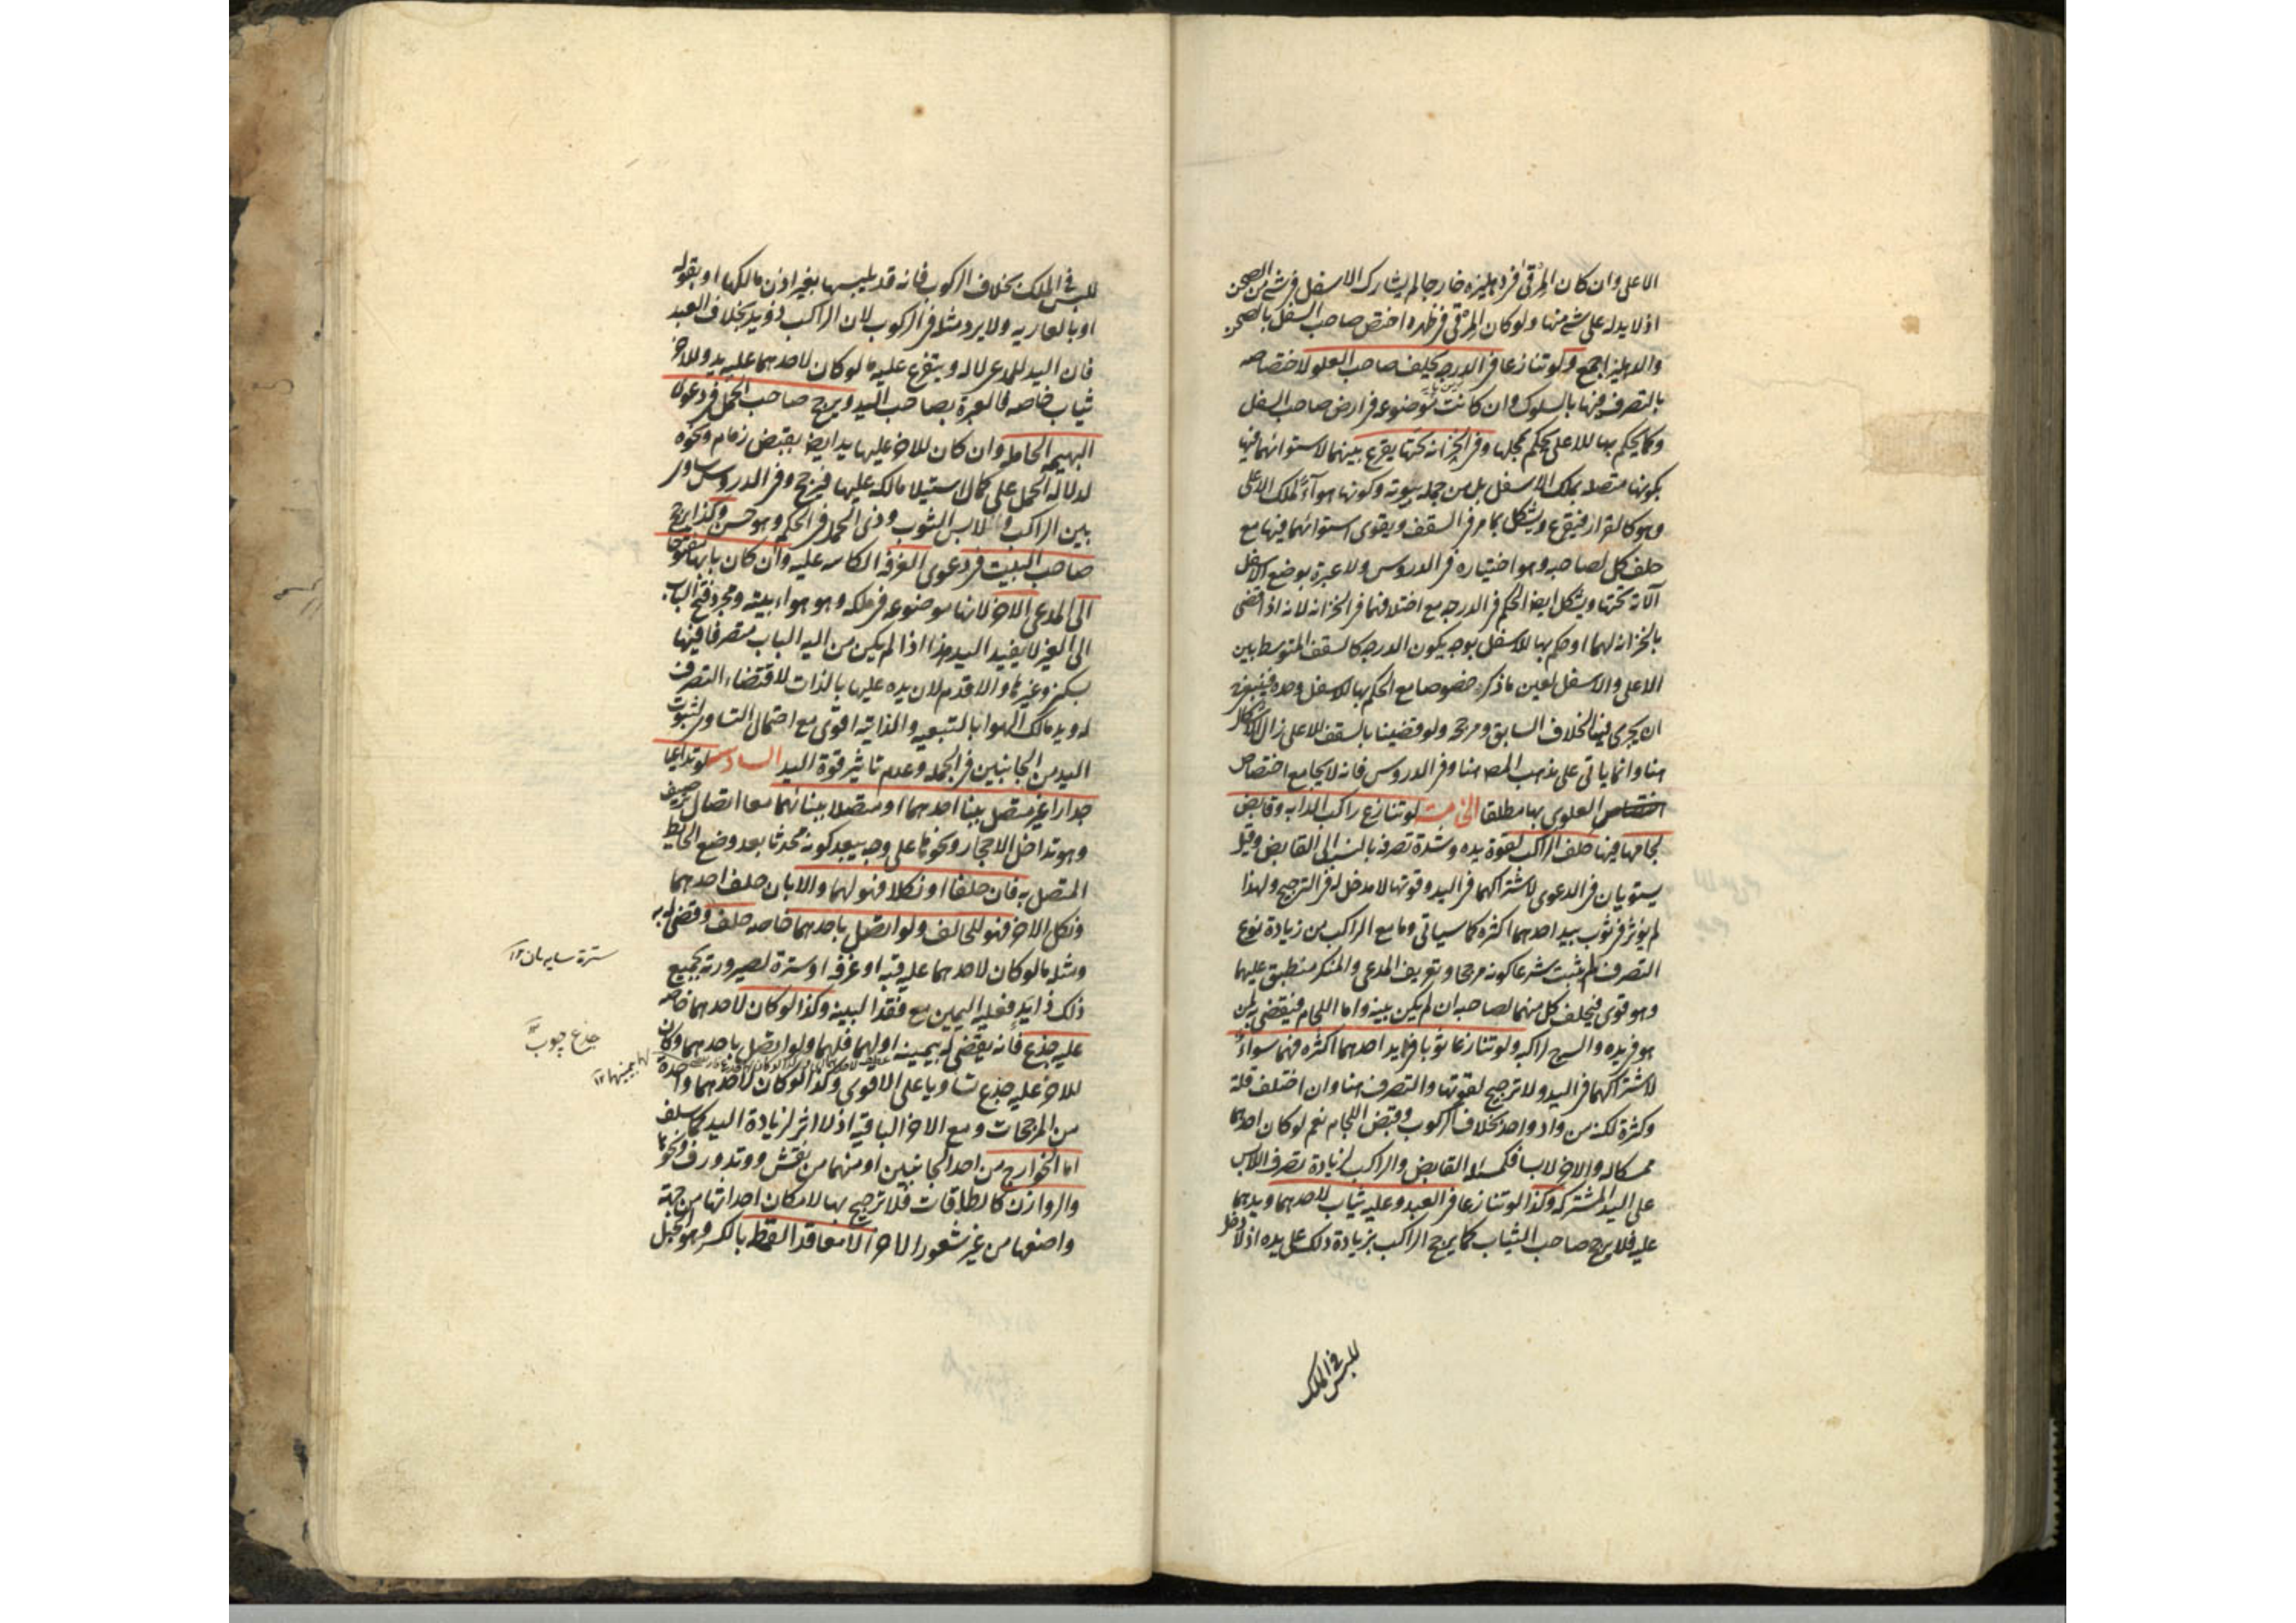 الاعلى وان كان المرقى في دهليزه خارجا لم يشارك الاسفل في شئ من الصحن
اذ لا يد له على شئ منها ولو كان المرقى في ظهره اختص صاحب السفل بالصحن
والدهليز اجمع ولو تنازعا في الدرجة يحلف صاحب العلو لاختصاصه
بالتصرف فيها بالسلوك وان كانت موضوعه في ارض صاحب السفل
وكما يحكم بها للاعلى يحكم بمحلها وفي الخزانه تحتها يقرع بينهما لاستوائهما فيها
بكونها متصله بملك الاسفل بل من جمله بيوته وكونها هواء لملك الاعلى
وهو كالقرار فيقرع ويشكل بما مر في السقف ويقوى استوائهما فيها مع
حلف كل لصاحبه وهو اختياره في الدروس ولا عبرة بوضع الاسفل
آلاته تحتها ويشكل ايضا الحكم في الدرجه مع اختلافهما في الخزانه لانه اذا قضى
بالخزانه لهما او حكم بها للاسفل بوجه يكون الدرجه كالسقف المتوسط بين
الاعلى والاسفل لعين ما ذكر خصوصا مع الحكم بها للاسفل وحده فينبغى
ان يجرى فيها الخلاف السابق ومرجحه ولو قضينا بالسقف للاعلى زال الاشكال
هنا وانما ياتى على مذهب المص هنا وفي الدروس فانه لا يجامع اختصاص
العلوى بها مطلقا الخامسة لو تنازع راكب الدابه وقابض
لجامها فيها حلف الراكب لقوة يده وشدة تصرفه بالنسبة الى القابض وقيل
يستويان في الدعوى لاشتراكهما في اليد وقوتها لا مدخل له في الترجيح ولهذا
لم يؤثر في ثوب بيد احدهما اكثره كما سياتى وما مع الراكب من زيادة نوع
التصرف لم يثبت شرعا كونه مرجحا وتعريف المدعى والمنكر منطبق عليهما
وهو قوى فيحلف كل منهما لصاحبه ان لم يكن بينه واما اللجام فيقضى به لمن
هو في يده والسرج لراكبه ولو تنازعا ثوبا في يد احدهما اكثره فهما سواء
لاشتراكهما في اليد ولا ترجيح لقوتها والتصرف هنا وان اختلف قلة
وكثرة لكنه من واد واحد بخلاف الركوب وقبض اللجام نعم لو كان احدهما
ممسكا له والاخر لابسا فكمسئلة القابض والراكب لزيادة تصرف اللابس
على اليد المشتركه وكذا لو تنازعا في العبد وعليه ثياب لاحدهما ويدهما
عليه فلا يرجح صاحب الثياب كما يرجح الراكب بزيادة ذلك على يده اذ لا دخل
للبس في الملك
للبس في الملك بخلاف الركوب فانه قد يلبسها بغير اذن مالكها او بقوله
او بالعاريه ولا يرد مثله في الركوب لان الراكب ذو يد بخلاف العبد
فان اليد للمدعى لا له ويتفرع عليه ما لو كان لاحدهما عليه يد وللاخر
ثياب خاصه فالعبرة بصاحب اليد ويرجح صاحب الحمل في دعوى
البهيمه الحامله وان كان للاخر عليها يد ايضا بقبض زمام ونحوه
لدلاله الحمل على كمال استيلاء مالكه عليها فيرجح وفي الدروس ساوى
بين الراكب ولابس الثوب وذى الحمل في الحكم وهو حسن وكذا يرجح
صاحب البيت في دعوى الغرفه الكائنه عليه وان كان بابها مفتوحا
الى المدعى الاخر لانها موضوعه في ملكه وهو هواء بيته ومجرد فتح الباب
الى الغير لا يفيد اليد هذا اذا لم يكن من اليه الباب متصرفا فيها
بسكنى وغيرها والا قدم لان يده عليها بالذات لاقتضاء التصرف
له ويد مالك الهواء بالتبعيه والذاتيه اقوى مع احتمال التساوى لثبوت
اليد من الجانبين في الجمله وعدم تاثير قوة اليد السادسة لو تداعيا
جدارا غير متصل ببناء احدهما او متصلا ببنائهما معا اتصال ترصيف
وهو تداخل الاحجار ونحوها على وجه يبعد كونه محدثا بعد وضع الحايط
المتصل به فان حلفا او نكلا فهو لهما والا بان حلف احدهما
ونكل الاخر فهو للحالف ولو اتصل باحدهما خاصه حلف وقضى له به
ومثله ما لو كان لاحدهما عليه قبه او غرفه او سترة لصيرورته بجميع
ذلك ذا يد فعليه اليمين مع فقد البينه وكذا لو كان لاحدهما خاصه
عليه جذع فانه يقضى له بيمينه او لهما فلهما ولو اتصل باحدهما وكان
للاخر عليه جذع تساويا على الاقوى وكذا لو كان لاحدهما واحدة
من المرجحات ومع الاخر الباقيه اذ لا اثر لزيادة اليد كما سلف
اما الخوارج من احد الجانبين او منهما من نقش ووتد ورف ونحوها
والروازن كالطاقات فلا ترجيح بها لامكان احداثها من جهة
واضعها من غير شعور الاخر الا معاقد القمط بالكسر وهو الحبل
سترة سايه بان ١٢
جذع چوب ١٢
بيمينهما ١٢